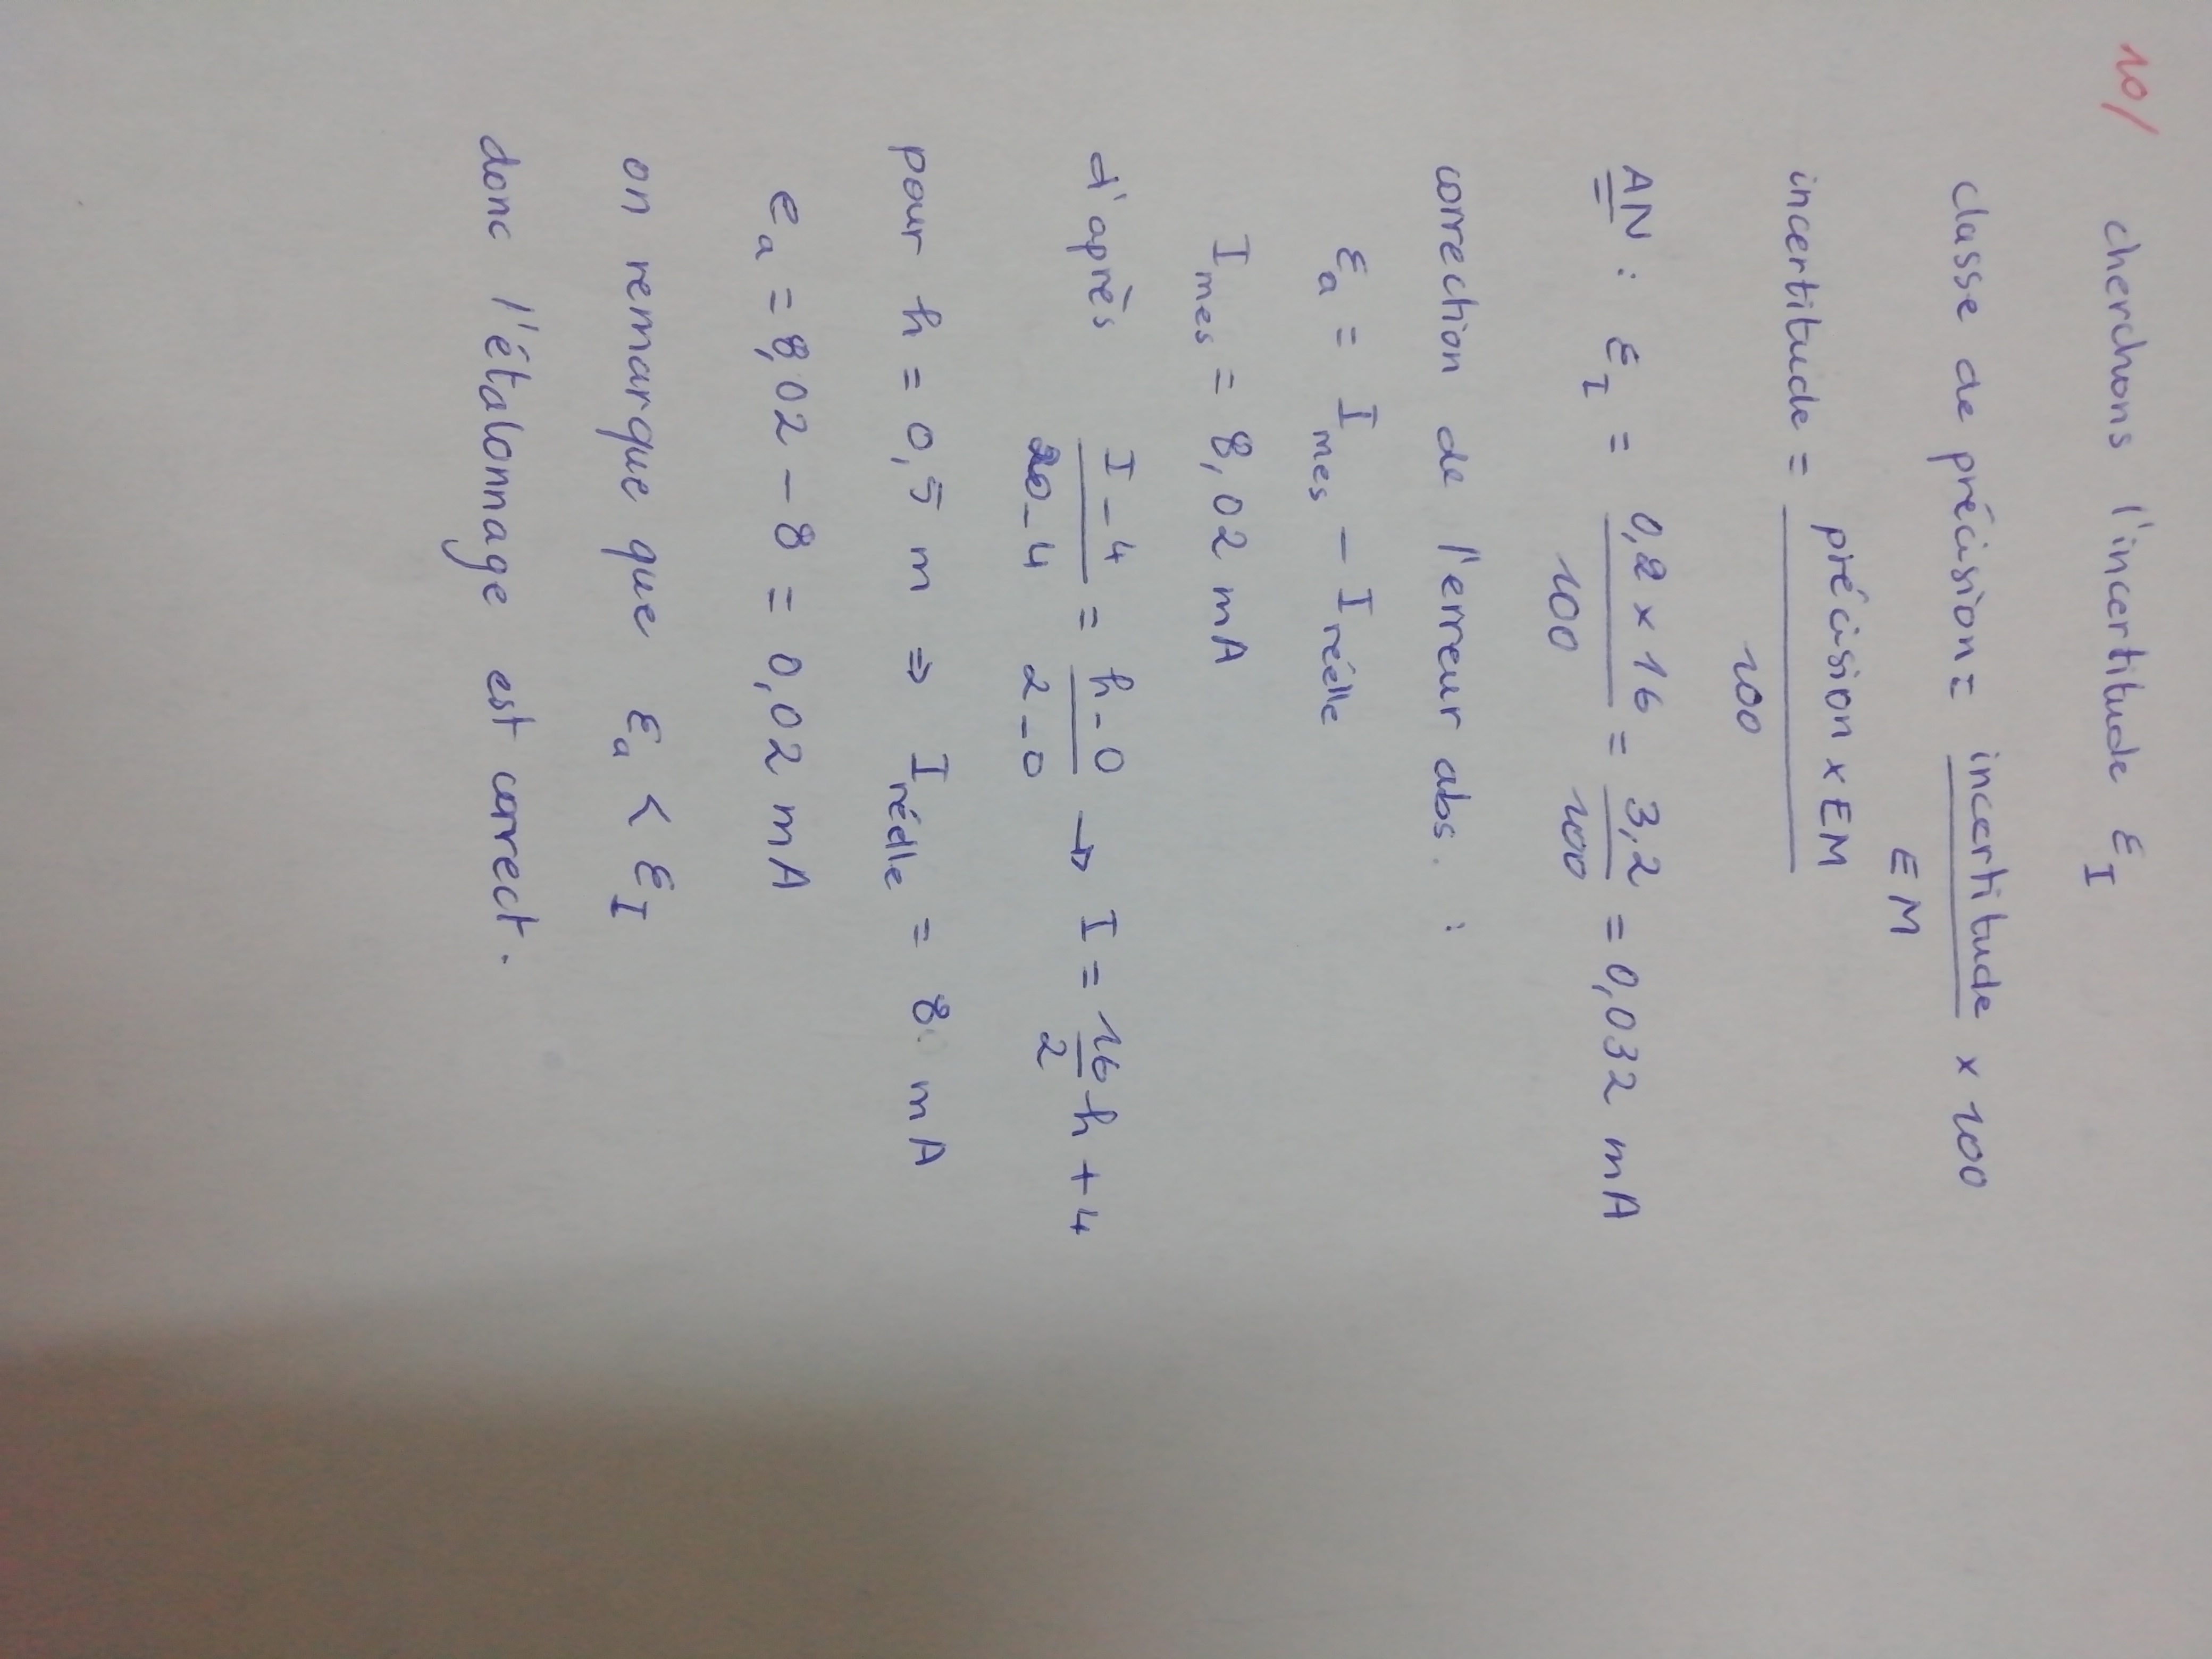 10/ cherchons l'incertitude ε_I
classe de précision = incertitude / EM × 100
incertitude = précision × EM / 100
AN : ε_I = 0,2 × 16 / 100 = 3,2 / 100 = 0,032 mA
correction de l'erreur abs. :
ε_a = I_mes − I_réelle
I_mes = 8,02 mA
d'après I − 4 / 20 − 4 = h − 0 / 2 − 0 → I = 16/2 h + 4
pour h = 0,5 m ⇒ I_réelle = 8 mA
e_a = 8,02 − 8 = 0,02 mA
on remarque que ε_a < ε_I
donc l'étalonnage est correct.